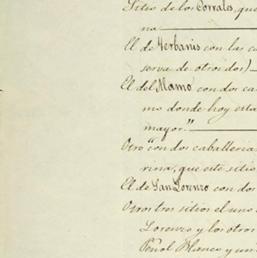 Sitio de los Corrales, que
na
El de Yerbanis con las ca
serva de otros dos)
El del Mamo con dos ca
mo donde hoy esta
mayor."
Otro "con dos caballeria
rina, que este sitio
El de San Lorenzo con dos
Otros tres sitios el uno
Lorenzo y los otros
Peñol Blanco y un